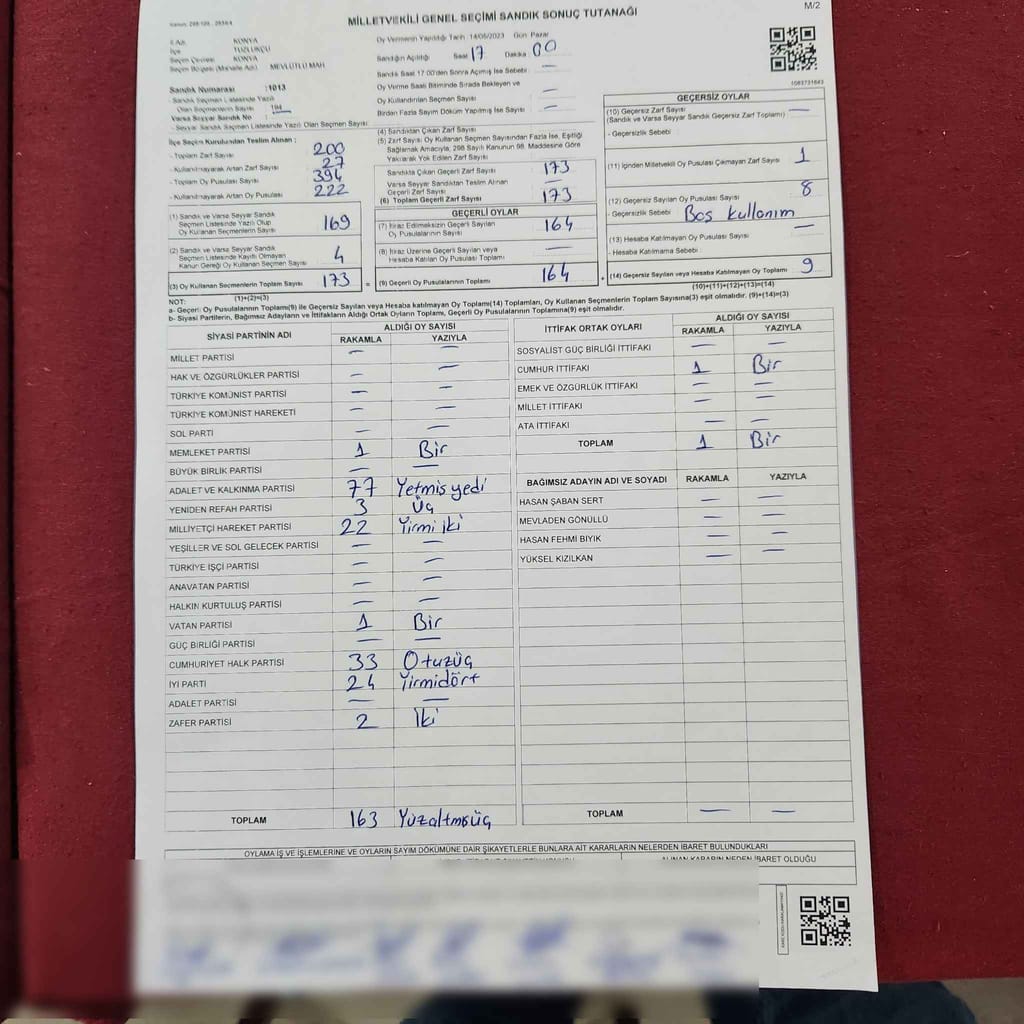 M/2
MİLLETVEKİLİ GENEL SEÇİMİ SANDIK SONUÇ TUTANAĞI
İl Adı : KONYA
İlçe TUZLUKÇU
Seçim Çevresi KONYA
Seçim Bölgesi (Mahalle Adı) MEVLÜTLÜ MAH
Sandık Numarası :1013
- Sandık Seçmen Listesinde Yazılı
Olan Seçmenlerin Sayısı 194
Varsa Seyyar Sandık No
- Seyyar Sandık Seçmen Listesinde Yazılı Olan Seçmen Sayısı
Oy Vermenin Yapıldığı Tarih 14/05/2023 Gün Pazar
Sandığın Açıldığı Saat 17 Dakika 00
Sandık Saat 17:00'den Sonra Açılmış İse Sebebi —
Oy Verme Saati Bitiminde Sırada Bekleyen ve
Oy Kullandırılan Seçmen Sayısı —
Birden Fazla Sayım Döküm Yapılmış İse Sayısı —
1083731643
İlçe Seçim Kurulundan Teslim Alınan :
- Toplam Zarf Sayısı 200
- Kullanılmayarak Artan Zarf Sayısı 27
- Toplam Oy Pusulası Sayısı 394
- Kullanılmayarak Artan Oy Pusulası 222
(1) Sandık ve Varsa Seyyar Sandık
Seçmen Listesinde Yazılı Olup
Oy Kullanan Seçmenlerin Sayısı 169
(2) Sandık ve Varsa Seyyar Sandık
Seçmen Listesinde Kayıtlı Olmayan
Kanun Gereği Oy Kullanan Seçmen Sayısı 4
(3) Oy Kullanan Seçmenlerin Toplam Sayısı 173 =
(1)+(2)=(3)
(4) Sandıktan Çıkan Zarf Sayısı
(5) Zarf Sayısı Oy Kullanan Seçmen Sayısından Fazla İse, Eşitliği
Sağlamak Amacıyla, 298 Sayılı Kanunun 98. Maddesine Göre
Yakılarak Yok Edilen Zarf Sayısı
Sandıkta Çıkan Geçerli Zarf Sayısı 173
Varsa Seyyar Sandıktan Teslim Alınan
Geçerli Zarf Sayısı —
(6) Toplam Geçerli Zarf Sayısı 173
GEÇERLİ OYLAR
(7) İtiraz Edilmeksizin Geçerli Sayılan
Oy Pusulalarının Sayısı 164
(8) İtiraz Üzerine Geçerli Sayılan veya
Hesaba Katılan Oy Pusulası Sayısı —
(9) Geçerli Oy Pusulalarının Toplamı 164 +
GEÇERSİZ OYLAR
(10) Geçersiz Zarf Sayısı —
(Sandık ve Varsa Seyyar Sandık Geçersiz Zarf Toplamı)
- Geçersizlik Sebebi
(11) İçinden Milletvekili Oy Pusulası Çıkmayan Zarf Sayısı 1
(12) Geçersiz Sayılan Oy Pusulası Sayısı 8
- Geçersizlik Sebebi Boş kullanım
(13) Hesaba Katılmayan Oy Pusulası Sayısı —
- Hesaba Katılmama Sebebi
(14) Geçersiz Sayılan veya Hesaba Katılmayan Oy Toplamı 9
(10)+(11)+(12)+(13)=(14)
NOT:
a- Geçerli Oy Pusulalarının Toplamı(9) ile Geçersiz Sayılan veya Hesaba katılmayan Oy Toplamı(14) Toplamları, Oy Kullanan Seçmenlerin Toplam Sayısına(3) eşit olmalıdır. (9)+(14)=(3)
b- Siyasi Partilerin, Bağımsız Adayların ve İttifakların Aldığı Ortak Oyların Toplamı, Geçerli Oy Pusulalarının Toplamına(9) eşit olmalıdır.
SİYASİ PARTİNİN ADI ALDIĞI OY SAYISI
RAKAMLA YAZIYLA
MİLLET PARTİSİ — —
HAK VE ÖZGÜRLÜKLER PARTİSİ — —
TÜRKİYE KOMÜNİST PARTİSİ — —
TÜRKİYE KOMÜNİST HAREKETİ — —
SOL PARTİ — —
MEMLEKET PARTİSİ 1 Bir
BÜYÜK BİRLİK PARTİSİ — —
ADALET VE KALKINMA PARTİSİ 77 Yetmiş yedi
YENİDEN REFAH PARTİSİ 3 Üç
MİLLİYETÇİ HAREKET PARTİSİ 22 Yirmi iki
YEŞİLLER VE SOL GELECEK PARTİSİ — —
TÜRKİYE İŞÇİ PARTİSİ — —
ANAVATAN PARTİSİ — —
HALKIN KURTULUŞ PARTİSİ — —
VATAN PARTİSİ 1 Bir
GÜÇ BİRLİĞİ PARTİSİ — —
CUMHURİYET HALK PARTİSİ 33 Otuzüç
İYİ PARTİ 24 Yirmidört
ADALET PARTİSİ — —
ZAFER PARTİSİ 2 İki
TOPLAM 163 Yüzaltmışüç
İTTİFAK ORTAK OYLARI ALDIĞI OY SAYISI
RAKAMLA YAZIYLA
SOSYALİST GÜÇ BİRLİĞİ İTTİFAKI — —
CUMHUR İTTİFAKI 1 Bir
EMEK VE ÖZGÜRLÜK İTTİFAKI — —
MİLLET İTTİFAKI — —
ATA İTTİFAKI — —
TOPLAM 1 Bir
BAĞIMSIZ ADAYIN ADI VE SOYADI RAKAMLA YAZIYLA
HASAN ŞABAN SERT — —
MEVLADEN GÖNÜLLÜ — —
HASAN FEHMİ BIYIK — —
YÜKSEL KIZILKAN — —
TOPLAM — —
OYLAMA İŞ VE İŞLEMLERİNE VE OYLARIN SAYIM DÖKÜMÜNE DAİR ŞİKAYETLERLE BUNLARA AİT KARARLARIN NELERDEN İBARET BULUNDUKLARI
ALINAN KARARIN NEDEN İBARET OLDUĞU